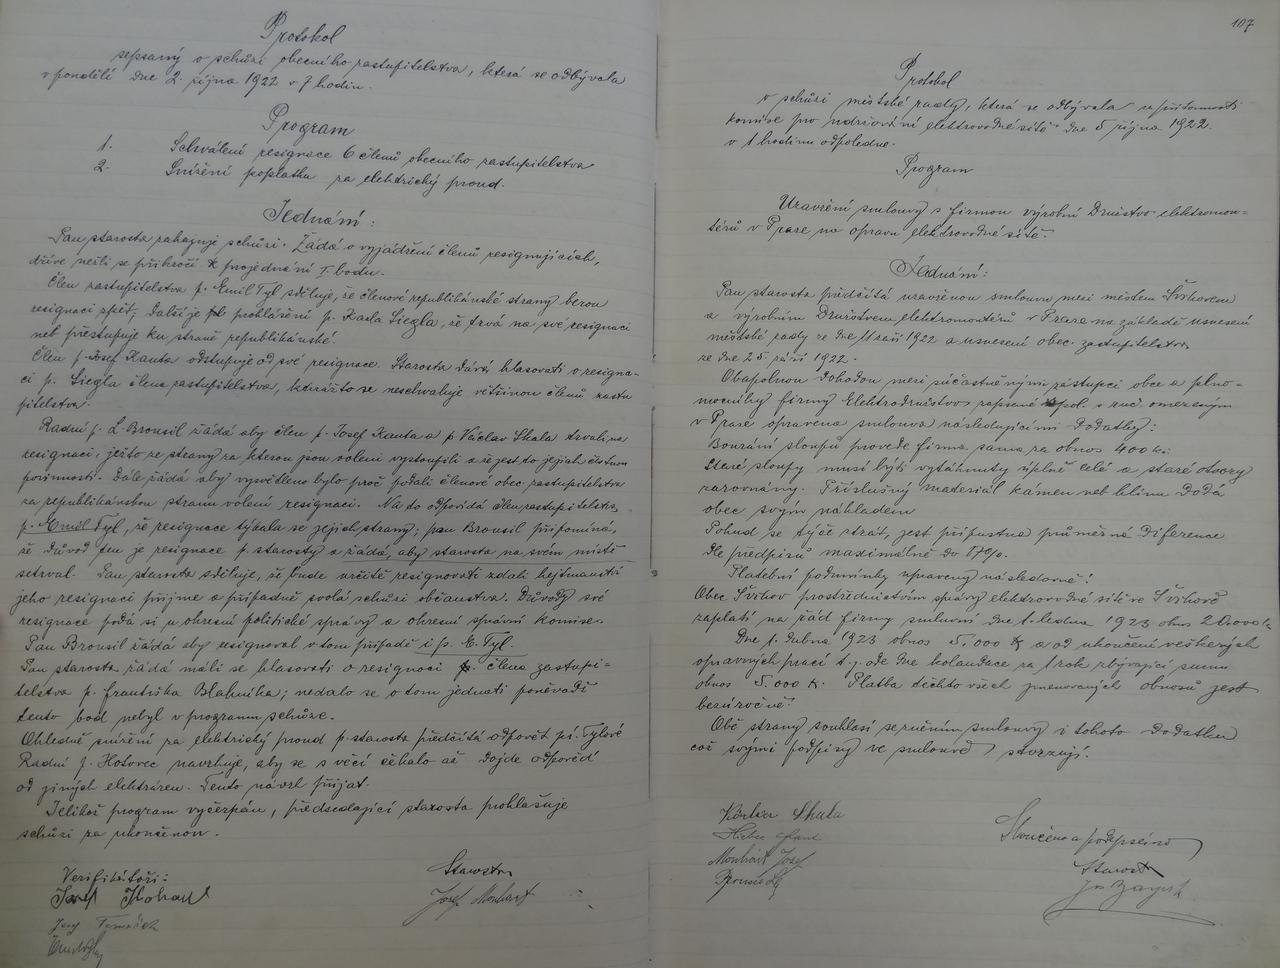 Protokol
sepsaný o schůzi obecního zastupitelstva, která se odbývala
v pondělí dne 2. října 1922 v 7 hodin.
Program
1. Schválení resignace 6 členů obecního zastupitelstva
2. Snížení poplatku za elektrický proud.
Jednání:
Pan starosta zahajuje schůzi. Žádá o vyjádření členů resignujících,
dříve nežli se přikročí k projednání I. bodu.
Člen zastupitelstva p. Emil Tyl sděluje, že členové republikánské strany berou
resignaci zpět, další je prohlášení p. Karla Siegla, že trvá na své resignaci
neb přestupuje ku straně republikánské.
Člen p. Josef Kauta odstupuje od své resignace. Starosta dává hlasovati o resigna-
ci p. Siegla člena zastupitelstva, kterážto se neschvaluje většinou členů zastu
pitelstva.
Radní p. L. Brousil žádá aby člen p. Josef Kauta a p Václav Skala trvali na
resignaci, ježto ze strany za kterou jsou voleni vystoupili a že jest to jejich čestnou
povinností. Dále žádá aby vysvětleno bylo proč podali členové obec zastupitelstva
za republikánskou stranu volení resignaci. Na to odpovídá člen zastupitelstva
p. Emil Tyl, že resignace týkala se jejich strany; pan Brousil připomíná,
že důvod ten je resignace p. starosty a žádá, aby starosta na svém místě
setrval. Pan starosta sděluje, že bude určitě resignovati zdali hejtmanství
jeho resignaci přijme a případně svolá schůzi občanstva. Důvody své
resignace podá si u okresní politické správy a okresní správní komise.
Pan Brousil žádá aby resignoval v tom případě i p. E. Tyl.
Pan starosta žádá máli se hlasovati o resignaci p. člena zastupi-
telstva p. Františka Blahníka; nedalo se o tom jednati poněvadž
tento bod nebyl v programu schůze.
Ohledně snížení za elektrický proud p. starosta předčítá odpověď pí. Tylové
Radní p. Hotovec navrhuje, aby se s věcí čekalo až dojde odpověď
od jiných elektráren. Tento návrh přijat.
Jelikož program vyčerpán, předsedající starosta prohlašuje
schůzi za ukončenou.
Verifikátoři:
Starosta
Josef Monhart
107
Protokol
o schůzi městské rady, která se odbývala za přítomnosti
komise pro udržování elektrovodné sítě dne 5 října 1922.
v 1 hodinu odpoledne.
Program
Uzavření smlouvy s firmou výrobní Družstvo elektromon-
térů v Praze na opravu elektrovodné sítě.
Jednání:
Pan starosta předčítá uzavřenou smlouvu mezi městem Švihovem
a výrobním Družstvem elektromontérů v Praze na základě usnesení
městské rady ze dne 11 září 1922 a usnesení obec. zastupitelstva
ze dne 25. září 1922.
Obapolnou dohodou mezi súčastněnými zástupci obce a plno-
mocníky firmy Elektrodružstvo zapsané spol. s ruč. omezeným
v Praze opravena smlouva následujícími dodatky:
Bourání sloupů provede firma sama za obnos 400 K.
Staré sloupy musí býti vytáhnuty úplně celé a staré otvory
zarovnány. Příslušný materiál kámen neb hlínu dodá
obec svým nákladem
Pokud se týče ztrát, jest přípustna průměrná diference
dle předpisů maximálně do 17%.
Platební podmínky upraveny následovně:
Obec Švihov prostřednictvím správy elektrovodné sítě ve Švihově
zaplatí na řád firmy smluvní dne 1. ledna 1923 obnos 20.000 K
Dne 1. dubna 1923 obnos 5.000 K a od ukončení veškerých
opravných prací t.j. ode dne kolaudace za 1 rok zbývající sumu
obnos 5.000 K. Platba těchto všech jmenovaných obnosů jest
bezúročně.
Obě strany souhlasí se zněním smlouvy i tohoto dodatku
což svými podpisy ve smlouvě stvrzují.
Skala
Monhart Josef
Brousil L
Skončeno a podepsáno
Starosta